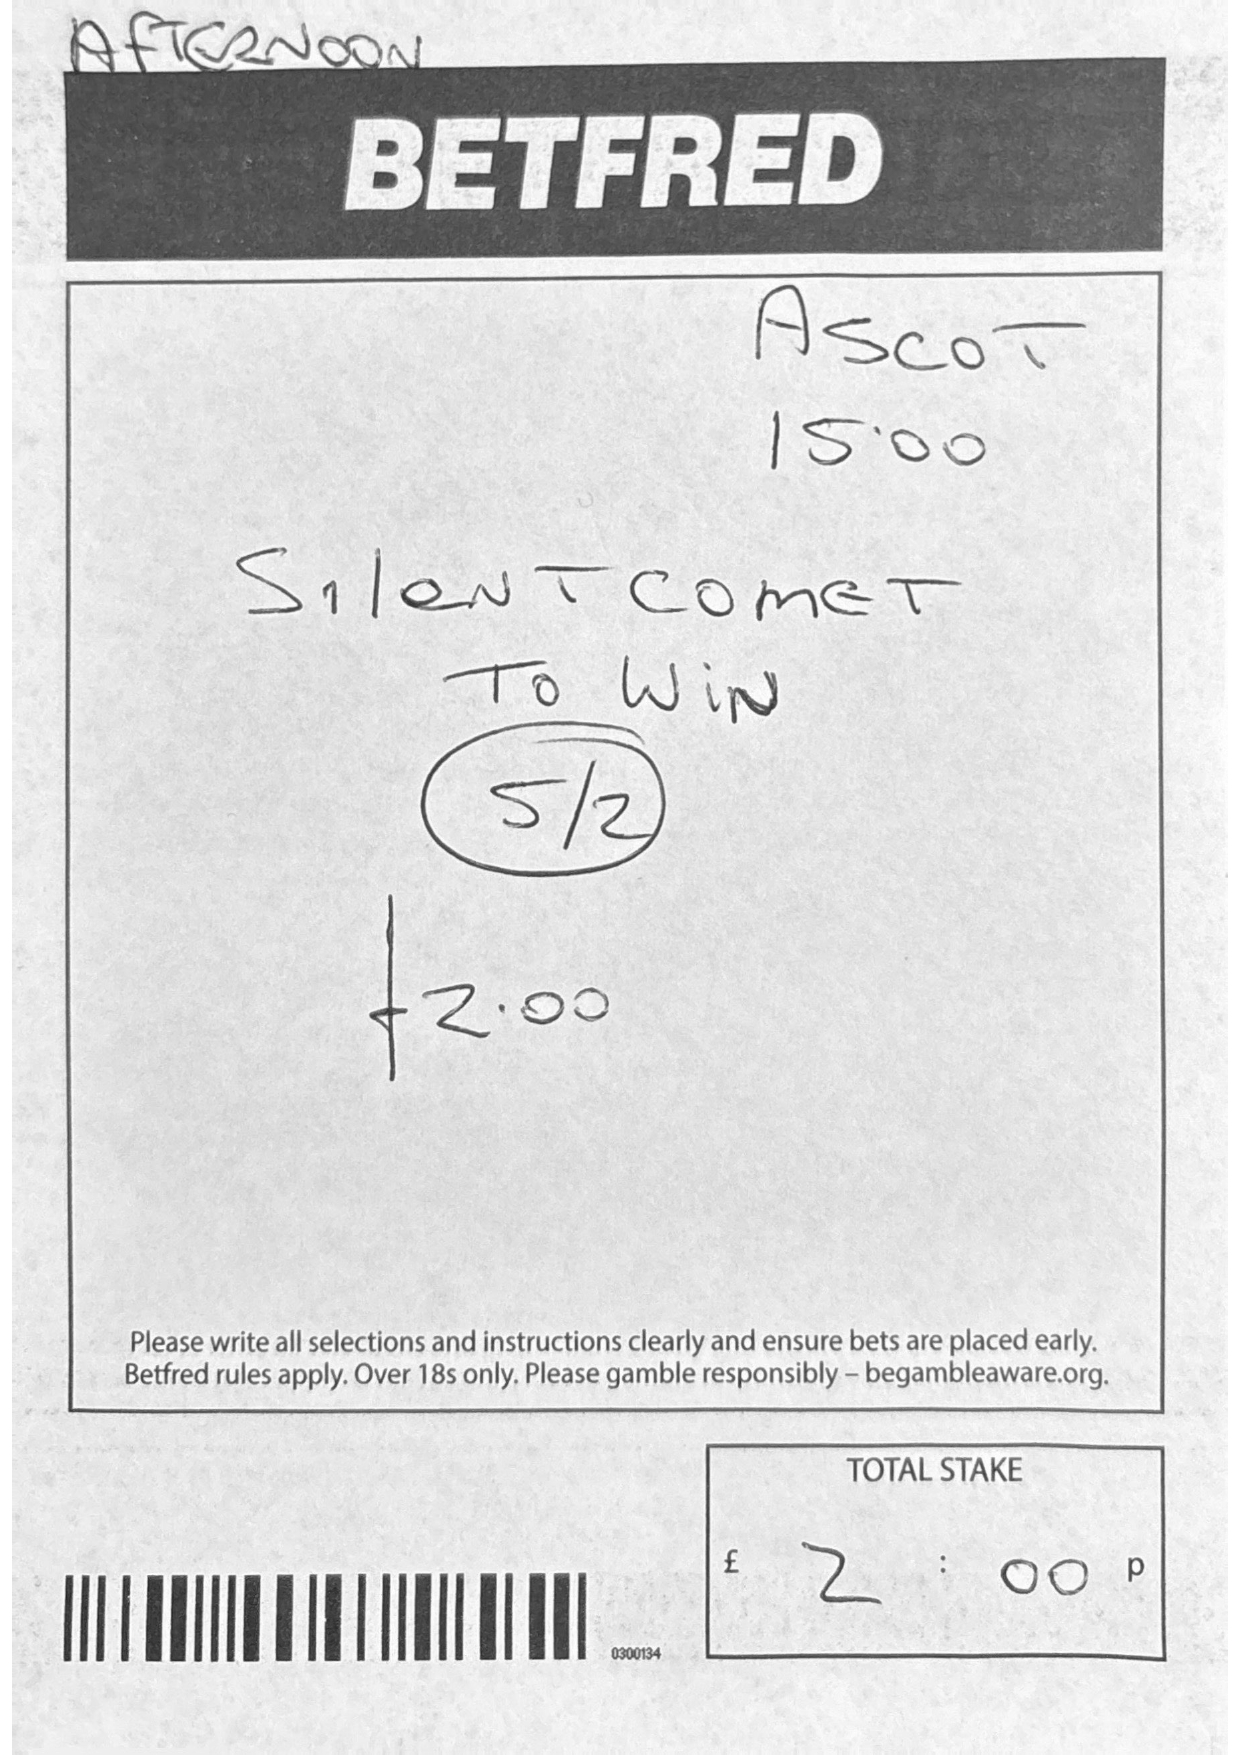 AFTERNOON
BETFRED
ASCOT
15.00
SilenT COMET
To WiN
5/2
£2.00
Please write all selections and instructions clearly and ensure bets are placed early.
Betfred rules apply. Over 18s only. Please gamble responsibly – begambleaware.org.
TOTAL STAKE
£ 2 : 00 p
0300134